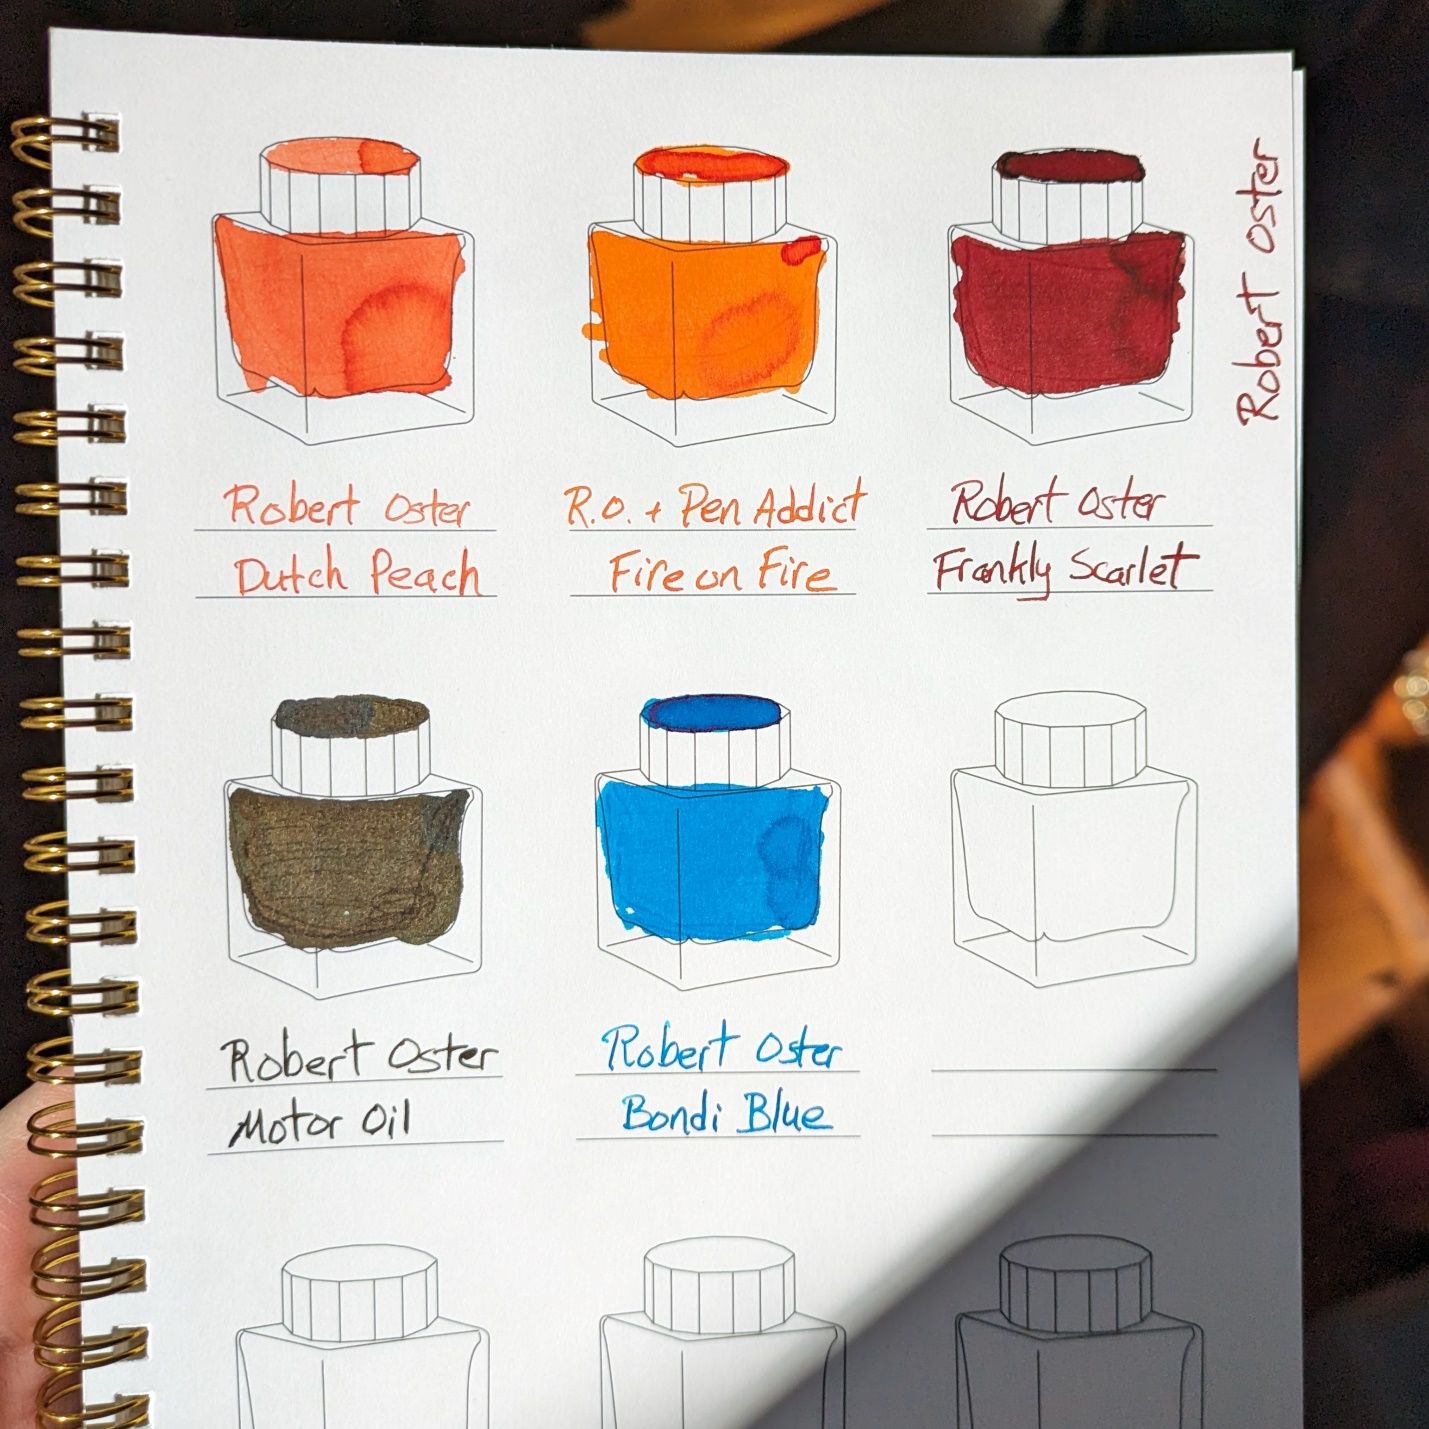 Robert Oster
Robert Oster
Dutch Peach
R.O. + Pen Addict
Fire on Fire
Robert Oster
Frankly Scarlet
Robert Oster
Motor Oil
Robert Oster
Bondi Blue